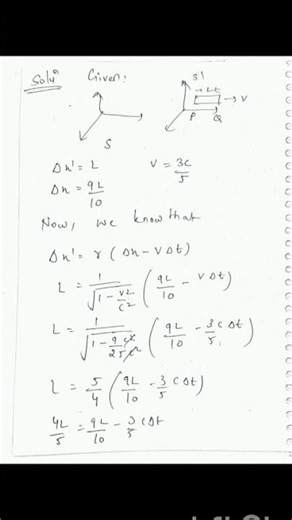 Solⁿ Given:
S' → Lt → V
P Q
S
Δx' = L V = 3c/5
Δx = 9L/10
Now, we know that
Δx' = γ (Δx - VΔt)
L = 1/√(1 - V²/c²) (9L/10 - VΔt)
L = 1/√(1 - 9c²/25c²) (9L/10 - 3cΔt/5)
L = 5/4 (9L/10 - 3/5 cΔt)
4L/5 = 9L/10 - 3/5 cΔt